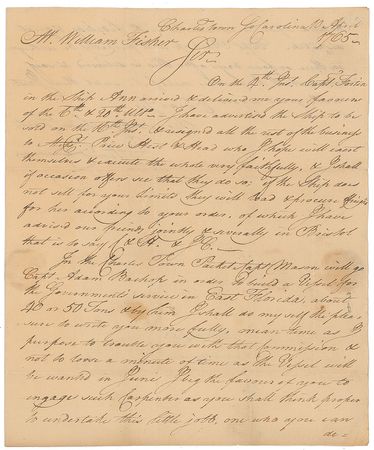 Charles Town So Carolina 13 April
1765
Mr. William Fisher
Sir
On the 4th Inst. Capt. Fortin
in the Ship Ann arived & delivered me your favours
of the 6th & 20th Ulto I have advertised the Ship to be
sold on the 16th Inst. & resigned all the rest of the business
to Price Hest & Head who I hope will exert
themselves & execute the whole very faithfully, & I shall
if occasion offers see that they do so; if the Ship does
not sell for your Limits they will load & procure freight
for her acording to your order, of which I have
advised our friends jointly & severally in Bristol
that is to say & &
In the Charles Town Packet Capt Mason will go
Capt. Adam Bachop in order to build a Vessel for
the Governments service in East Florida, about
40 or 50 Tons & by him I shall do my self the plea=
sure to write you more fully, mean time as I
purpose to trouble you with that commission &
not to loose a minute of time as the Vessel will
be wanted in June I beg the favour of you to
engage such Carpenter as you shall think proper
to undertake this little jobb, one who you can
de=